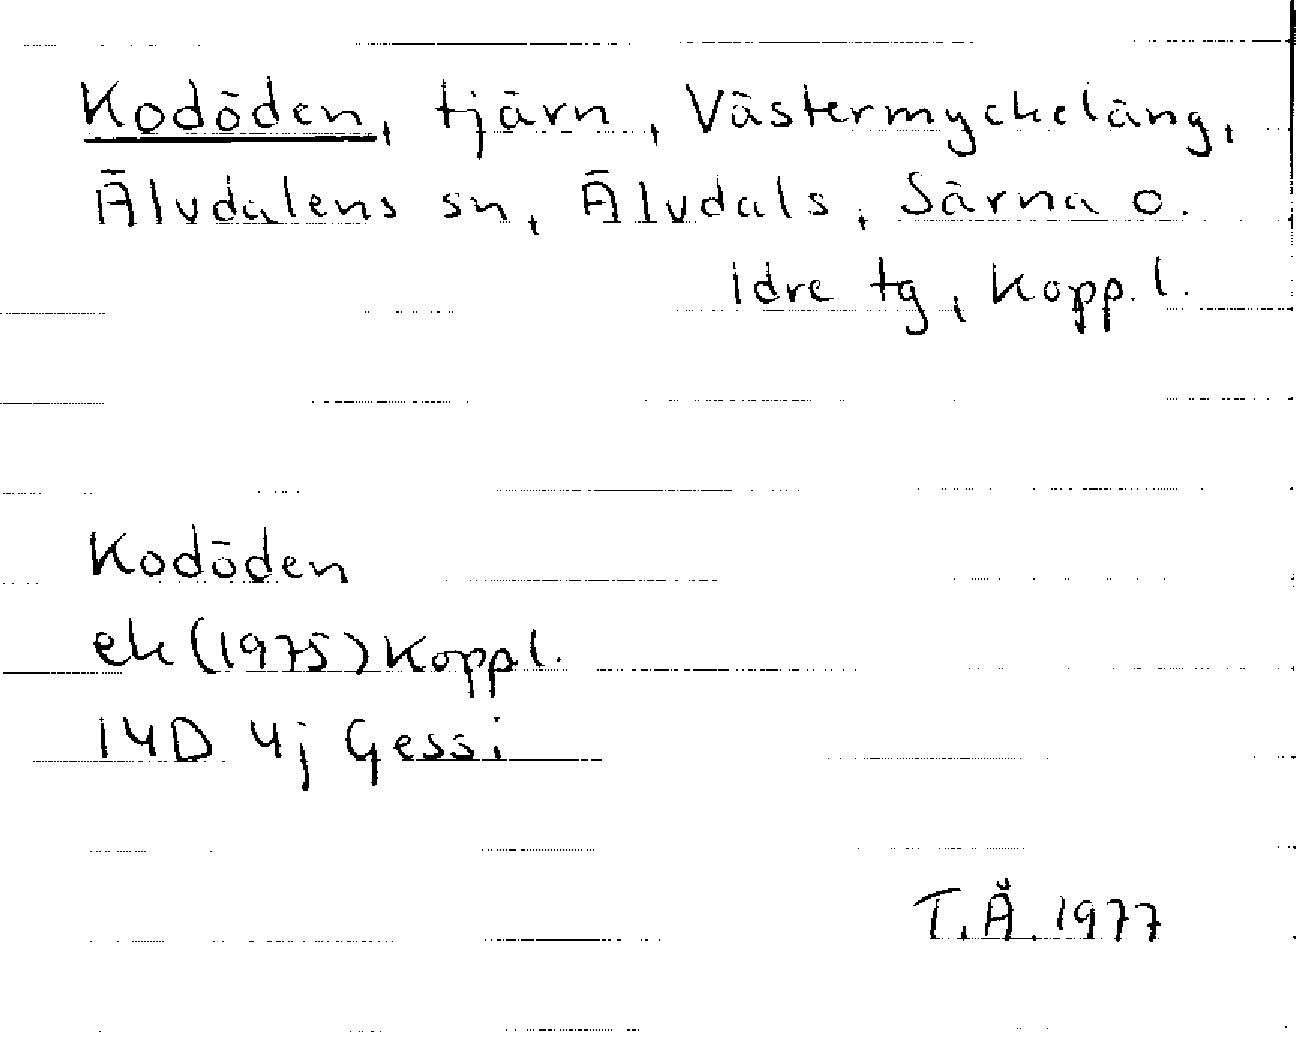 Kodöden, tjärn, Västermyckeläng,
Älvdalens sn, Älvdals, Särna o.
Idre tg, Kopp. l.
Kodöden
ek (1975) Koppl.
14D 4j Gessi
T.Å. 1977